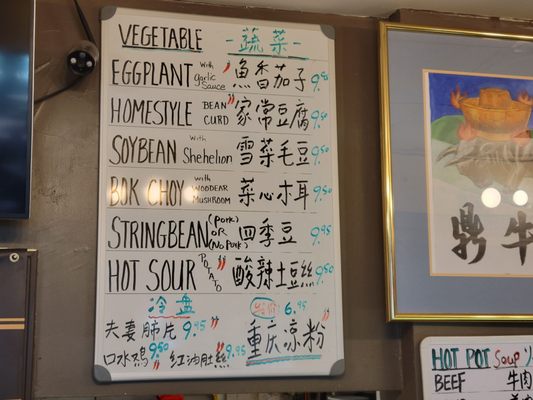 VEGETABLE -蔬菜-
EGGPLANT with garlic sauce 魚香茄子 9.95
HOMESTYLE BEAN CURD 家常豆腐 9.50
SOYBEAN with Shehelion 雪菜毛豆 9.50
BOK CHOY with WOODEAR MUSHROOM 菜心木耳 9.50
STRINGBEAN (PORK) OR (NO PORK) 四季豆 9.95
HOT SOUR POTATO 酸辣土豆丝 9.50
冷盘
夫妻肺片 9.95
口水鸡 9.50 红油肚丝 9.95
6.95
重庆凉粉
鼎 牛
HOT POT Soup
BEEF 牛肉